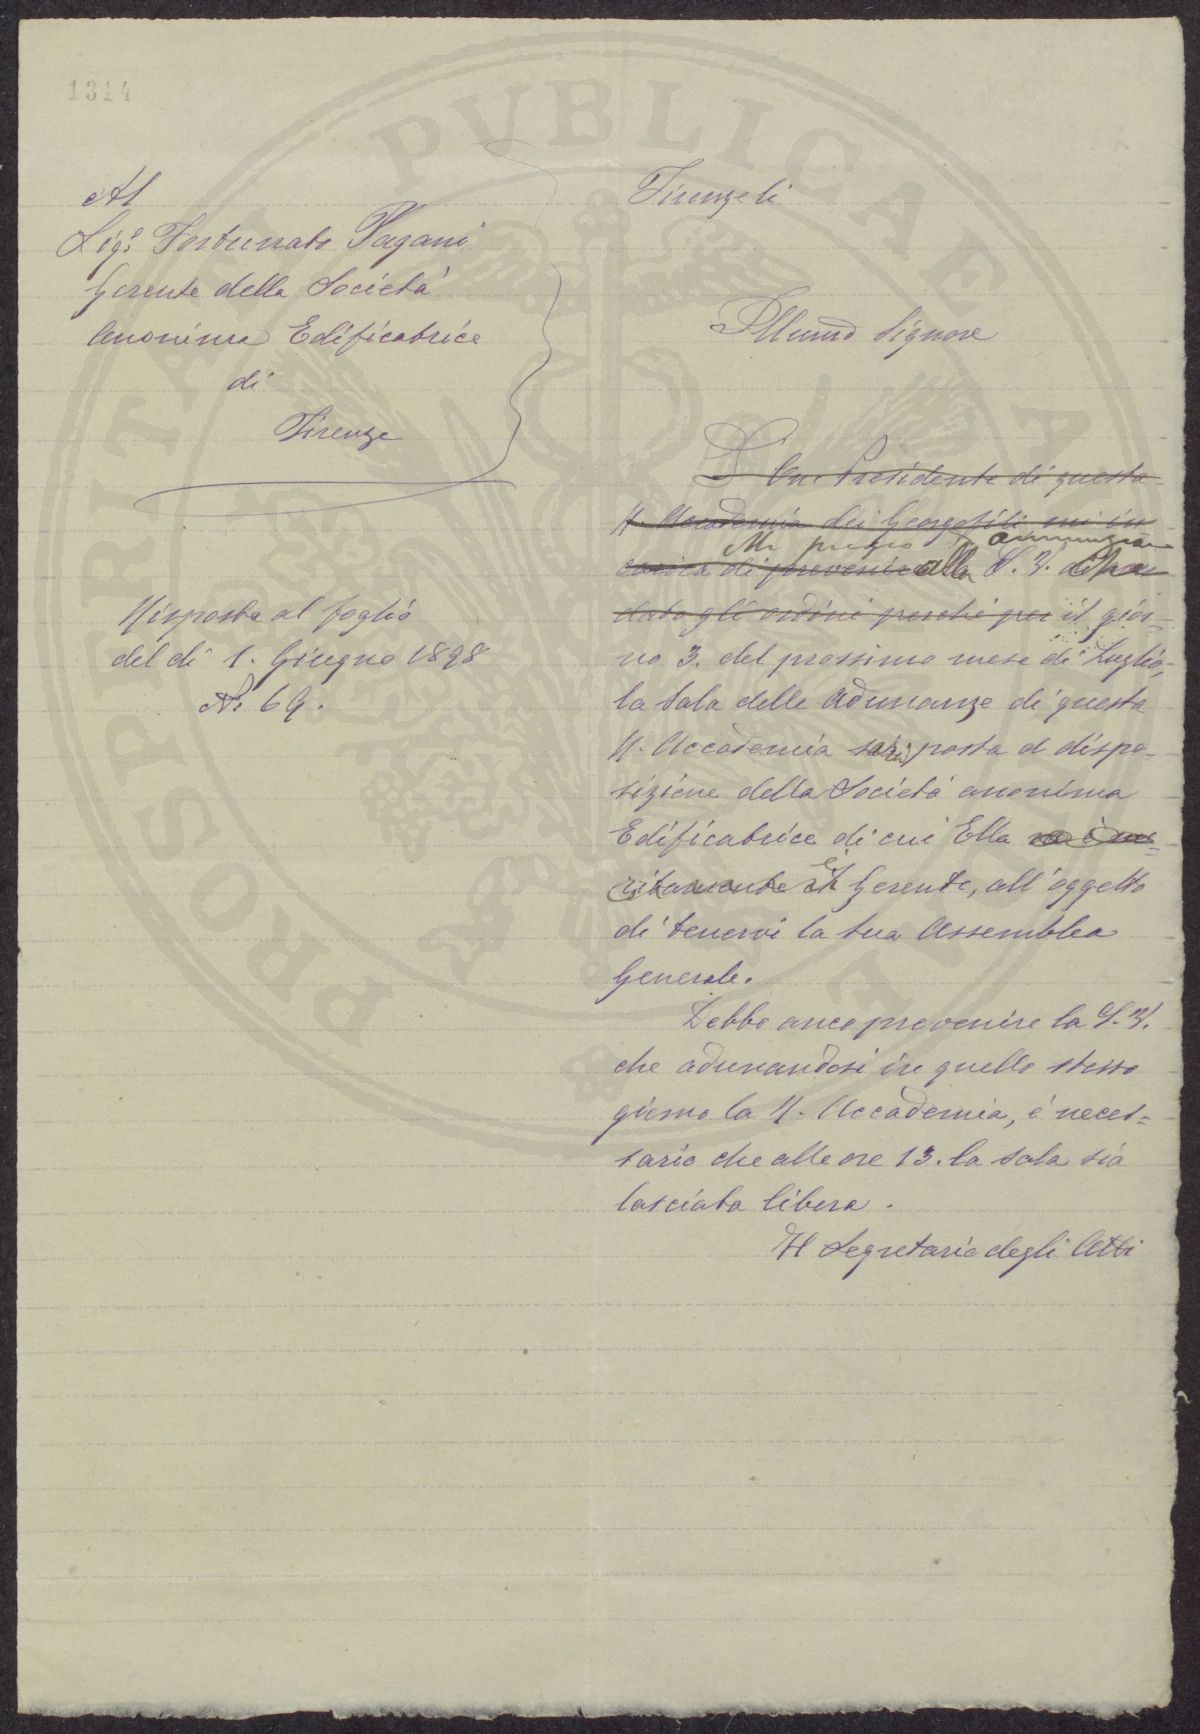 1314
Al
Sig.r Fortunato Pagani
Gerente della Società
Anonima Edificatrice
di
Firenze
Risposta al foglio
del dì 1. Giugno 1898
No 69.
Firenze li
Illumo Signore
L'On. Presidente di questa
R. Accademia dei Georgofili mi in
Mi pregio annunziare
carica di prevenire alla S. V. di ha
dato gli ordini perchè per il gior=
no 3. del prossimo mese di Luglio,
la Sala delle Adunanze di questa
R. Accademia sarà posta a dispo=
sizione della Società anonima
Edificatrice di cui Ella ne è me=
ritamente è il Gerente, all'oggetto
di tenervi la sua Assemblea
Generale.
Debbo anco prevenire la S. V.
che adunandosi in quello stesso
giorno la R. Accademia, è neces=
sario che alle ore 13. la sala sia
lasciata libera.
Il Segretario degli Atti
PROSPERITATI PUBLICAE AUGENDAE